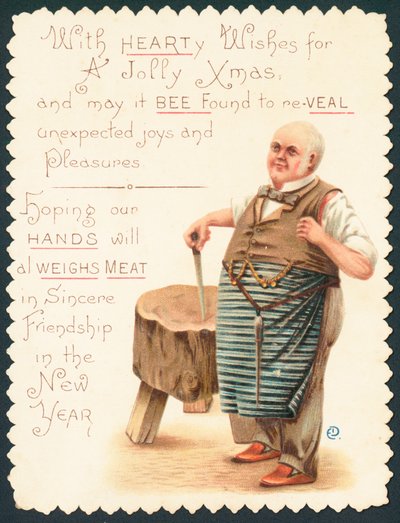 With HEARTy Wishes for
A Jolly Xmas,
and may it BEE Found to re-VEAL
unexpected joys and
Pleasures
Hoping our
HANDS will
alWEIGHS MEAT
in Sincere
Friendship
in the
New
YEAR